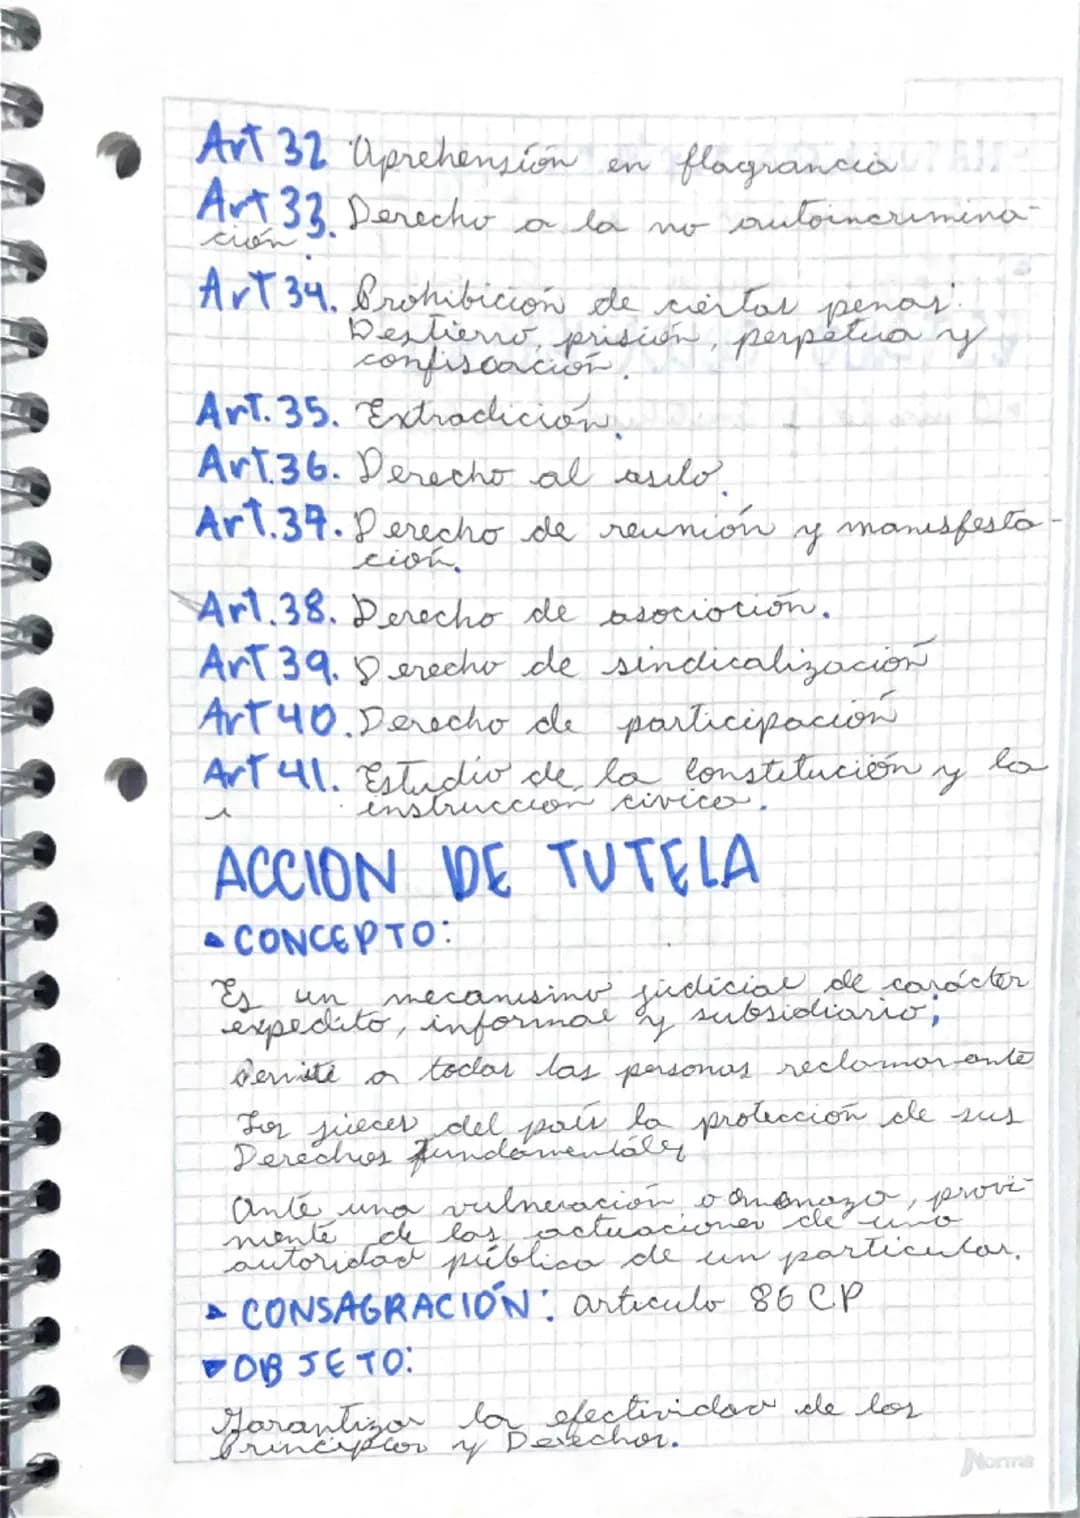 Art 32 Aprehensión en flagrancia
Art 33. Derecho a la no autoincrimina-
ción
Art 34. Prohibición de ciertas penas:
Destierro, prisión, perpetua y
confiscación.
Art. 35. Extradición.
Art. 36. Derecho al asilo.
Art. 37. Derecho de reunión y manisfesta-
ción.
Art. 38. Derecho de asociación.
Art 39. Derecho de sindicalización
Art 40. Derecho de participación
Art 41. Estudio de la Constitución y la
instrucción civica.
ACCION DE TUTELA
CONCEPTO:
Es un mecanismo judicial de carácter
expedito, informal y subsidiario;
Permite a todas las personas reclamar ante
Los jueces del país la protección de sus
Derechos Fundamentales
Ante una vulneración o amenaza, provi-
niente de las actuaciones de una
autoridad pública de un particular.
CONSAGRACIÓN: articulo 86 CP
OBJETO:
Garantizar la efectividad de los
Principios y Derechos.
Norma